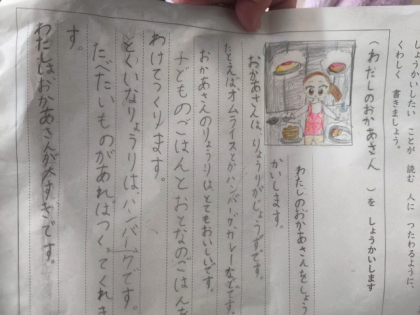 しょうかいしたい ことが 読む 人に つたわるように、
くわしく 書きましょう。
（わたしのおかあさん ）を しょうかいします
わたしのおかあさんをしょう
かいします。
おかあさんは、りょうりがじょうずです。
たとえば、オムライスとかハンバーグカレーなどです。
おかあさんのりょうりは、とてもおいしいです。
子どものごはんとおとなのごはんを
わけてつくります。
とくいなりょうりは、ハンバーグです。
たべたいものがあればつくってくれま
す。
わたしはおかあさんが大すきです。